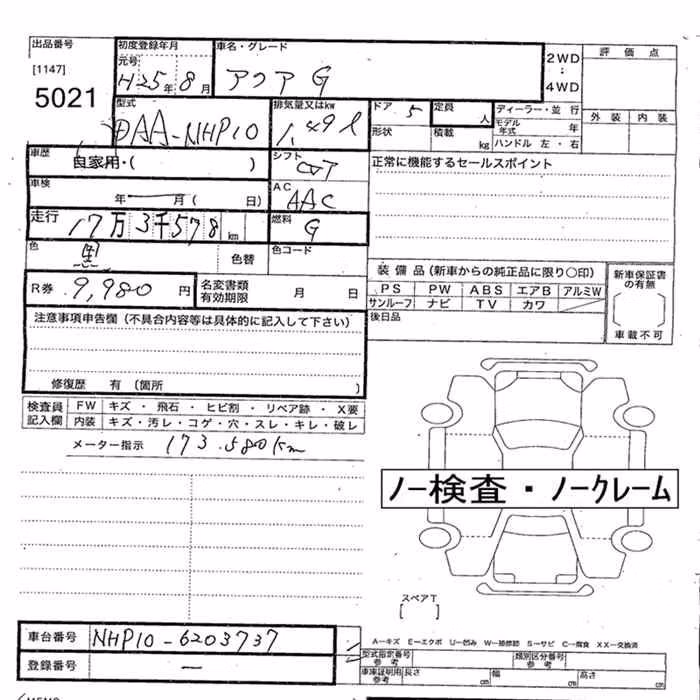 出品番号
[1147]
5021
初度登録年月
元号
H25年8月
車名・グレード
アクア G
2WD
:
4WD
評価点
外装 内装
型式
DAA-NHP10
排気量又はkw
1.49ℓ
ドア 5
形状
定員 人
積載 kg
ディーラー・並行
モデル年式 年
ハンドル 左・右
車歴
自家用・( )
シフト
CVT
正常に機能するセールスポイント
車検
年 月( 日)
AC
AAC
走行
17万3千578km
燃料
G
色
黒
色替
色コード
装備品(新車からの純正品に限り○印)
PS PW ABS エアB アルミW
サンルーフ ナビ TV カワ
新車保証書の有無
車載不可
R券 9,980円
名変書類有効期限 月 日
後日品
注意事項申告欄(不具合内容等は具体的に記入して下さい)
修復歴 有 〔箇所 〕
検査員 FW キズ・飛石・ヒビ割・リペア跡・X要
記入欄 内装 キズ・汚レ・コゲ・穴・スレ・キレ・破レ
メーター指示 173,580km
ノー検査・ノークレーム
スペアT
[ ]
車台番号 NHP10-6203737
登録番号 —
A―キズ E―エクボ U―凹み W―補修跡 S―サビ C―腐食 XX―交換済
型式指定番号 参考
類別区分番号 参考
車庫証明用 参考
長さ cm 幅 cm 高さ cm
MEMO